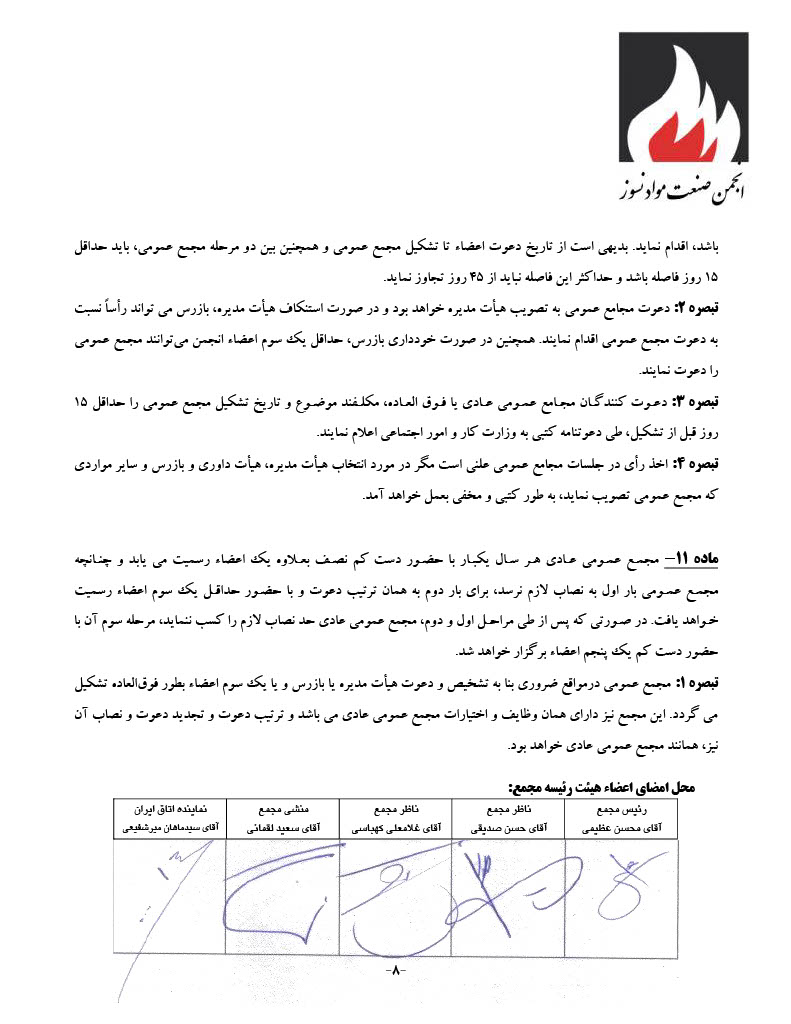 انجمن صنعت مواد نسوز
باشد، اقدام نماید. بدیهی است از تاریخ دعوت اعضاء تا تشکیل مجمع عمومی و همچنین بین دو مرحله مجمع عمومی، باید حداقل
۱۵ روز فاصله باشد و حداکثر این فاصله نباید از ۴۵ روز تجاوز نماید.
تبصره ۲: دعوت مجامع عمومی به تصویب هیأت مدیره خواهد بود و در صورت استنکاف هیأت مدیره، بازرس می تواند رأساً نسبت
به دعوت مجمع عمومی اقدام نمایند. همچنین در صورت خودداری بازرس، حداقل یک سوم اعضاء انجمن می‌توانند مجمع عمومی
را دعوت نمایند.
تبصره ۳: دعوت کنندگان مجامع عمومی عادی یا فوق العاده، مکلفند موضوع و تاریخ تشکیل مجمع عمومی را حداقل ۱۵
روز قبل از تشکیل، طی دعوتنامه کتبی به وزارت کار و امور اجتماعی اعلام نمایند.
تبصره ۴: اخذ رأی در جلسات مجامع عمومی علنی است مگر در مورد انتخاب هیأت مدیره، هیأت داوری و بازرس و سایر مواردی
که مجمع عمومی تصویب نماید، به طور کتبی و مخفی بعمل خواهد آمد.
ماده ۱۱– مجمع عمومی عادی هر سال یکبار با حضور دست کم نصف بعلاوه یک اعضاء رسمیت می یابد و چنانچه
مجمع عمومی بار اول به نصاب لازم نرسد، برای بار دوم به همان ترتیب دعوت و با حضور حداقل یک سوم اعضاء رسمیت
خواهد یافت. در صورتی که پس از طی مراحل اول و دوم، مجمع عمومی عادی حد نصاب لازم را کسب ننماید، مرحله سوم آن با
حضور دست کم یک پنجم اعضاء برگزار خواهد شد.
تبصره ۱: مجمع عمومی درمواقع ضروری بنا به تشخیص و دعوت هیأت مدیره یا بازرس و یا یک سوم اعضاء بطور فوق‌العاده تشکیل
می گردد. این مجمع نیز دارای همان وظایف و اختیارات مجمع عمومی عادی می باشد و ترتیب دعوت و تجدید دعوت و نصاب آن
نیز، همانند مجمع عمومی عادی خواهد بود.
محل امضای اعضاء هیئت رئیسه مجمع:
رئیس مجمع
آقای محسن عظیمی
ناظر مجمع
آقای حسن صدیقی
ناظر مجمع
آقای غلامعلی کهباسی
منشی مجمع
آقای سعید لقمانی
نماینده اتاق ایران
آقای سیدماهان میرشفیعی
-۸-